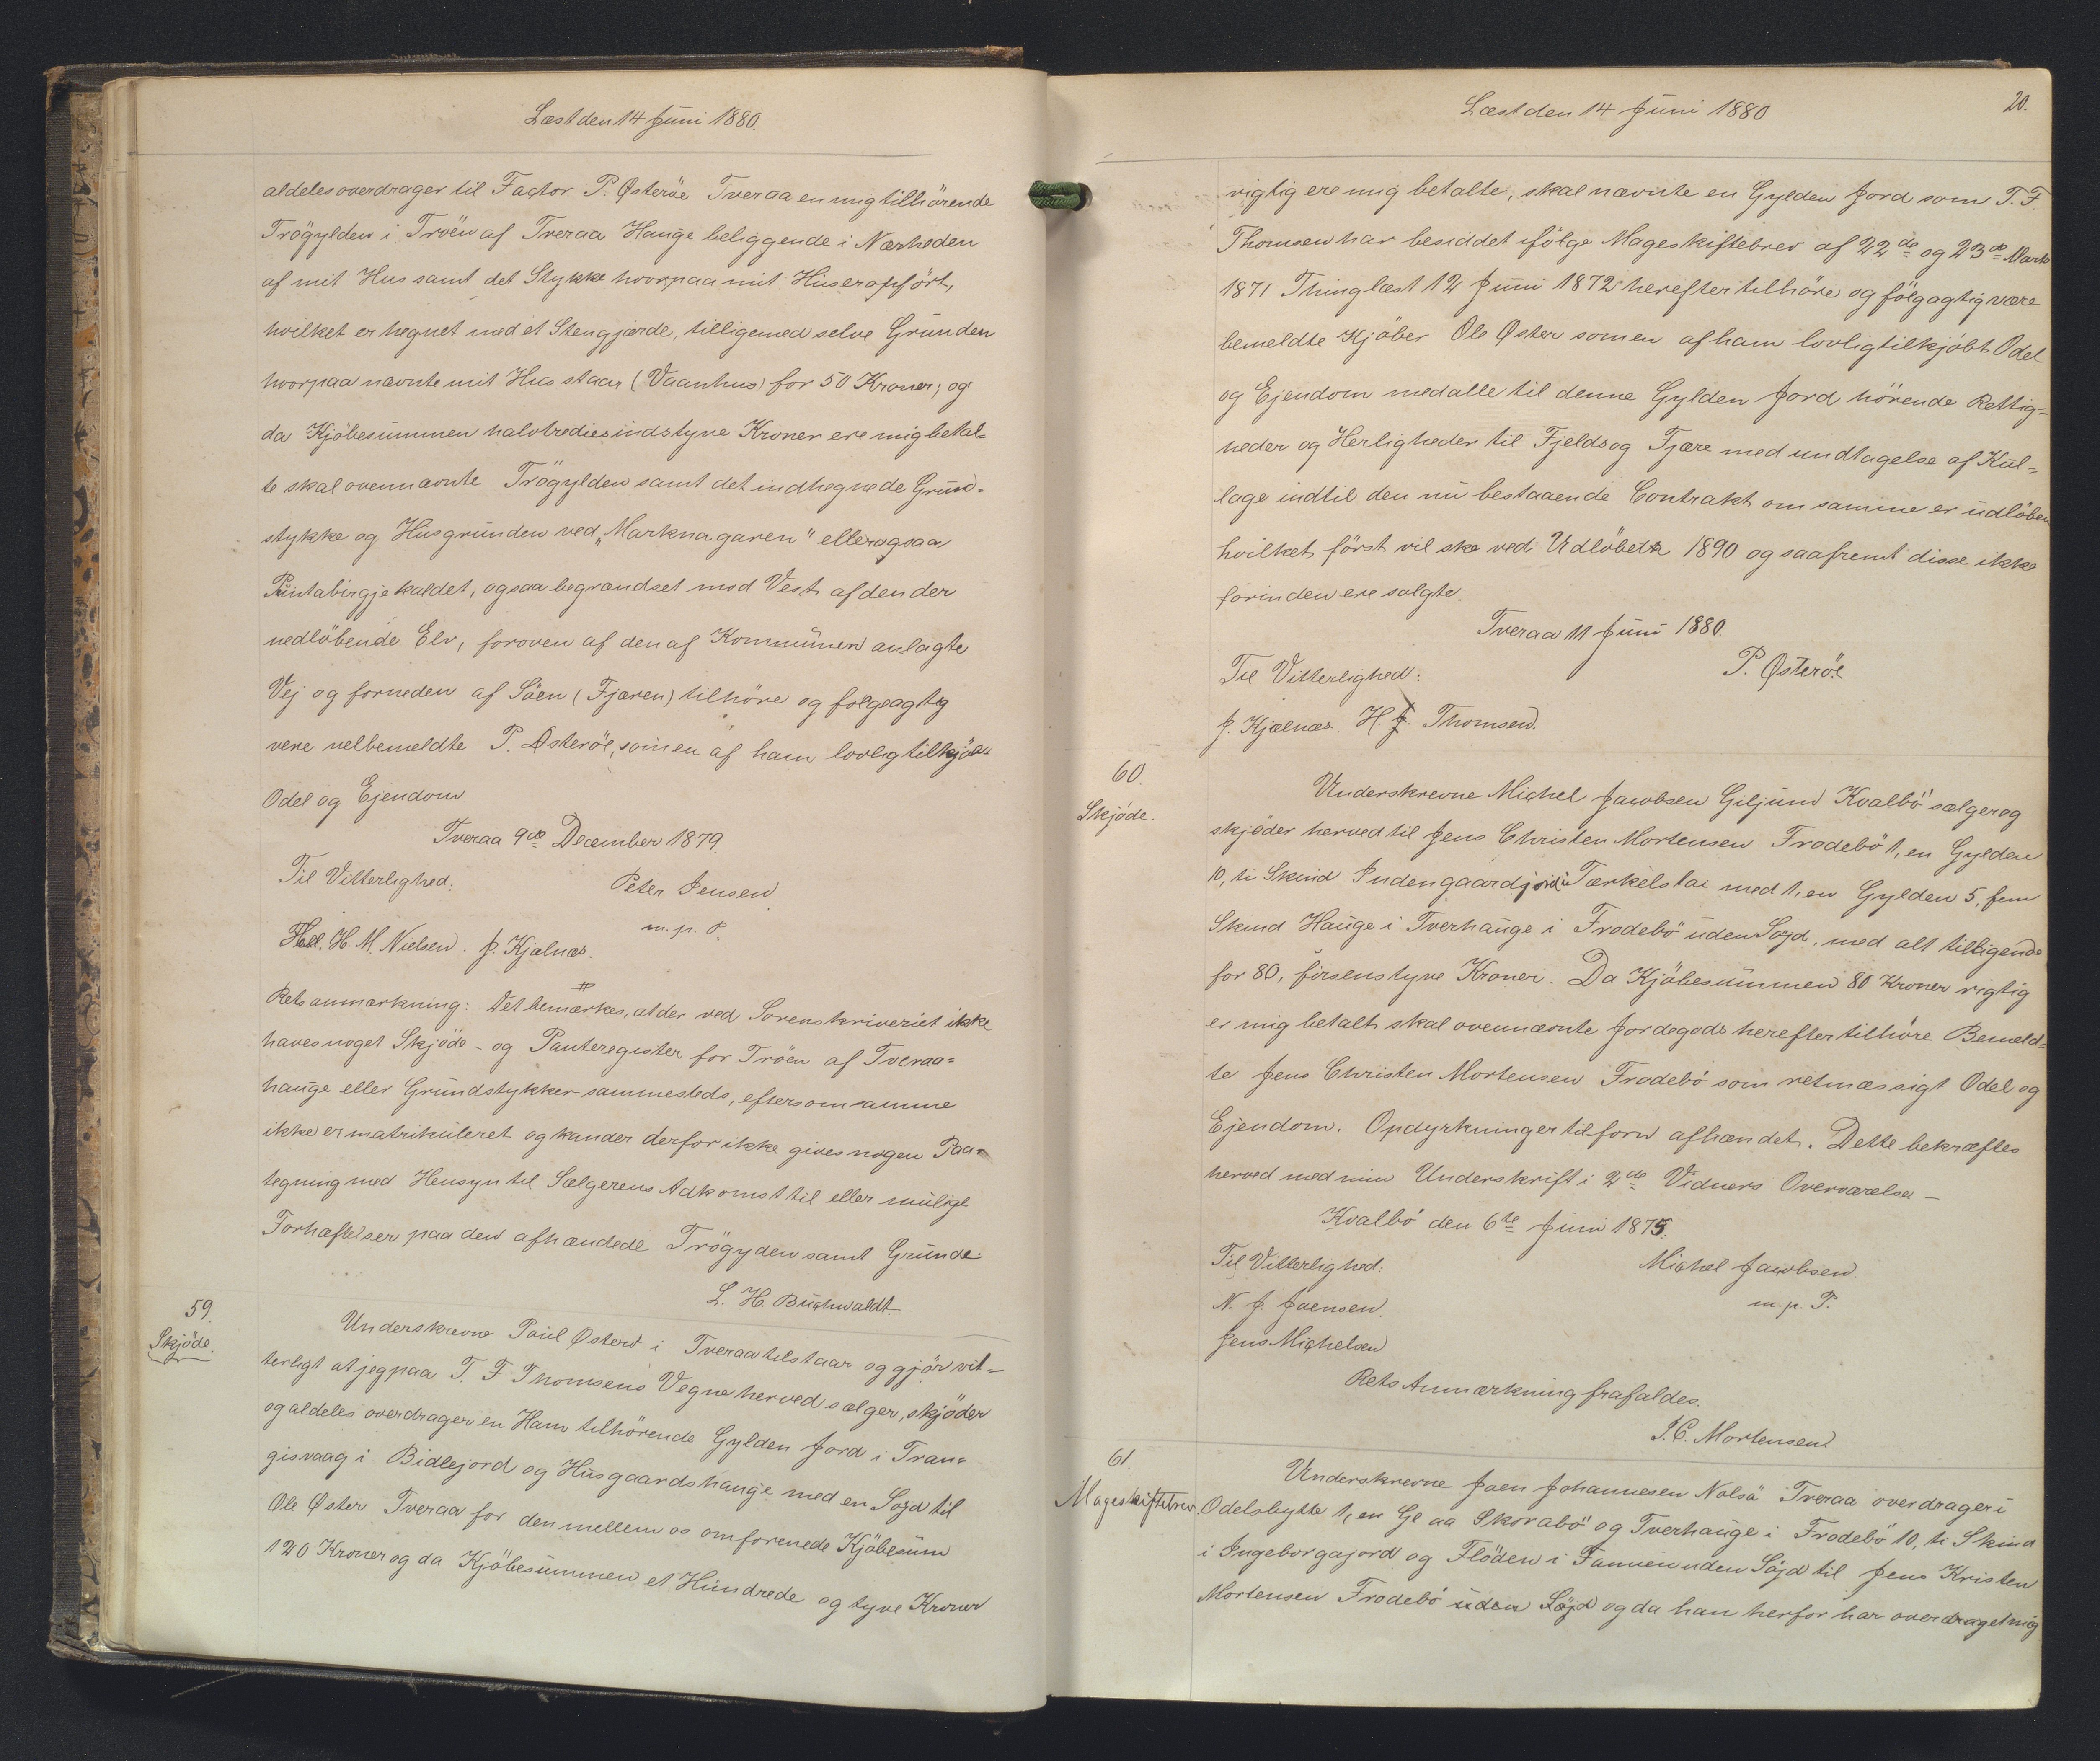 Læst den 14 Juni 1880.
aldeles overdrager til Factor P. Østeröe Tveraa en mig tilhörende
Trögylden i Tröen af Tveraa Hauge beliggende i Nærheden
af mit Hus samt det Stykke hvorpaa mit Hus er opfört,
hvilket er hegnet med et Stengjærde, tilligemed selve Grunden
hvorpaa nævnte mit Hus staar (Vaanhus) for 50 Kroner; og
da Kjöbesummen halvtrediesindstyve Kroner ere mig betal-
te skal ovennævnte Trögylden samt det indhegnede Grund-
stykke og Husgrunden ved "Marknagaren" eller ogsaa
Puntabirgje kaldet, ogsaa begrændset mod Vest af den der
nedlöbende Elv, foroven af den af Kommunen anlagte
Vej og forneden af Söen (Fjæren) tilhöre og følgeagtig
være velbemeldte P. Østeröe, som en af ham lovlig tilkjöbt
Odel og Ejendom.
Tveraa 9de December 1879.
Til Vitterlighed: Peter Jensen
m. p. P.
H. M. Nielsen. J. Kjølnæs.
Rets anmærkning: Det bemærkes, at der ved Sorenskriveriet ikke
haves noget Skjöde- og Panteregister for Tröen af Tveraa-
hauge eller Grundstykker sammesteds, eftersom samme
ikke er matrikuleret og kan der derfor ikke gives nogen Paa-
tegning med Hensyn til Sælgerens Adkomst til eller mulige
Forhæftelser paa den afhændede Trögyden samt Grunde.
L. H. Buchwaldt.
59.
Skjöde.
Underskrevne Poul Österö i Tveraa tilstaar og gjör vit-
terligt at jeg paa T. F. Thomsens Vegne herved sælger, skjöder
og aldeles overdrager en Ham tilhörende Gylden Jord i Tran-
gisvaag i Bidlejord og Husgaardshauge med en Søjd til
Ole Øster Tveraa for den mellem os omforenede Kjöbesum
120 Kroner og da Kjöbesummen et Hundrede og tyve Kroner
Læst den 14 Juni 1880
20.
rigtig ere mig betalte, skal nævnte en Gylden Jord som T. F.
Thomsen har besiddet ifölge Mageskiftebrev af 22de og 23de Marts
1871 Thinglæst 12 Juni 1872 herefter tilhöre og fölgagtig være
bemeldte Kjöber Ole Øster som en af ham lovlig tilkjöbt Odel
og Ejendom med alle til denne Gylden Jord hörende Rettig-
heder og Herligheder til Fjelds og Fjære med undtagelse af Kul-
lage indtil den nu bestaaende Contrakt om samme er udlöben
hvilket först vil ske ved Udlöbet 1890 og saafremt disse ikke
forinden ere solgte.
Tveraa 11 Juni 1880.
Til Vitterlighed: P. Østeröe
J. Kjølnæs. H. J. Thomsen.
60.
Skjöde.
Underskrevne Michel Jacobsen Giljund Kvalbö sælger og
skjöder herved til Jens Christen Mortensen Frodebö 1, en Gylden
10, ti Skind Indengaardjord i Tærkelstai med 1, en Gylden 5, fem
Skind Hauge i Tverhauge i Frodebö uden Søjd, med alt tilligende
for 80, firsenstyve Kroner. Da Kjöbesummen 80 Kroner rigtig
er mig betalt skal ovennævnte Jordegods herefter tilhöre Bemeld-
te Jens Christen Mortensen Frodebö som retmæssigt Odel og
Ejendom. Opdyrkninger tilforn afhændet. Dette bekræftes
herved med min Underskrift i 2de Vidners Overværelse —
Kvalbö den 6te Juni 1875.
Til Vitterlighed: Michel Jacobsen.
N. J. Joensen. m. p. P.
Jens Michelsen
Rets Anmærkning frafaldes.
J. C. Mortensen
61.
Mageskiftebrev.
Underskrevne Joen Johannesen Nolsö Tveraa overdrager i
Odelsbytte 1, en Gl aa Skorabö og Tverhauge i Frodebö 10, ti Skind
i Ingeborgajord og Flöden i Famien uden Söjd til Jens Kristen
Mortensen Frodebö uden Søjd og da han herfor har overdraget mig